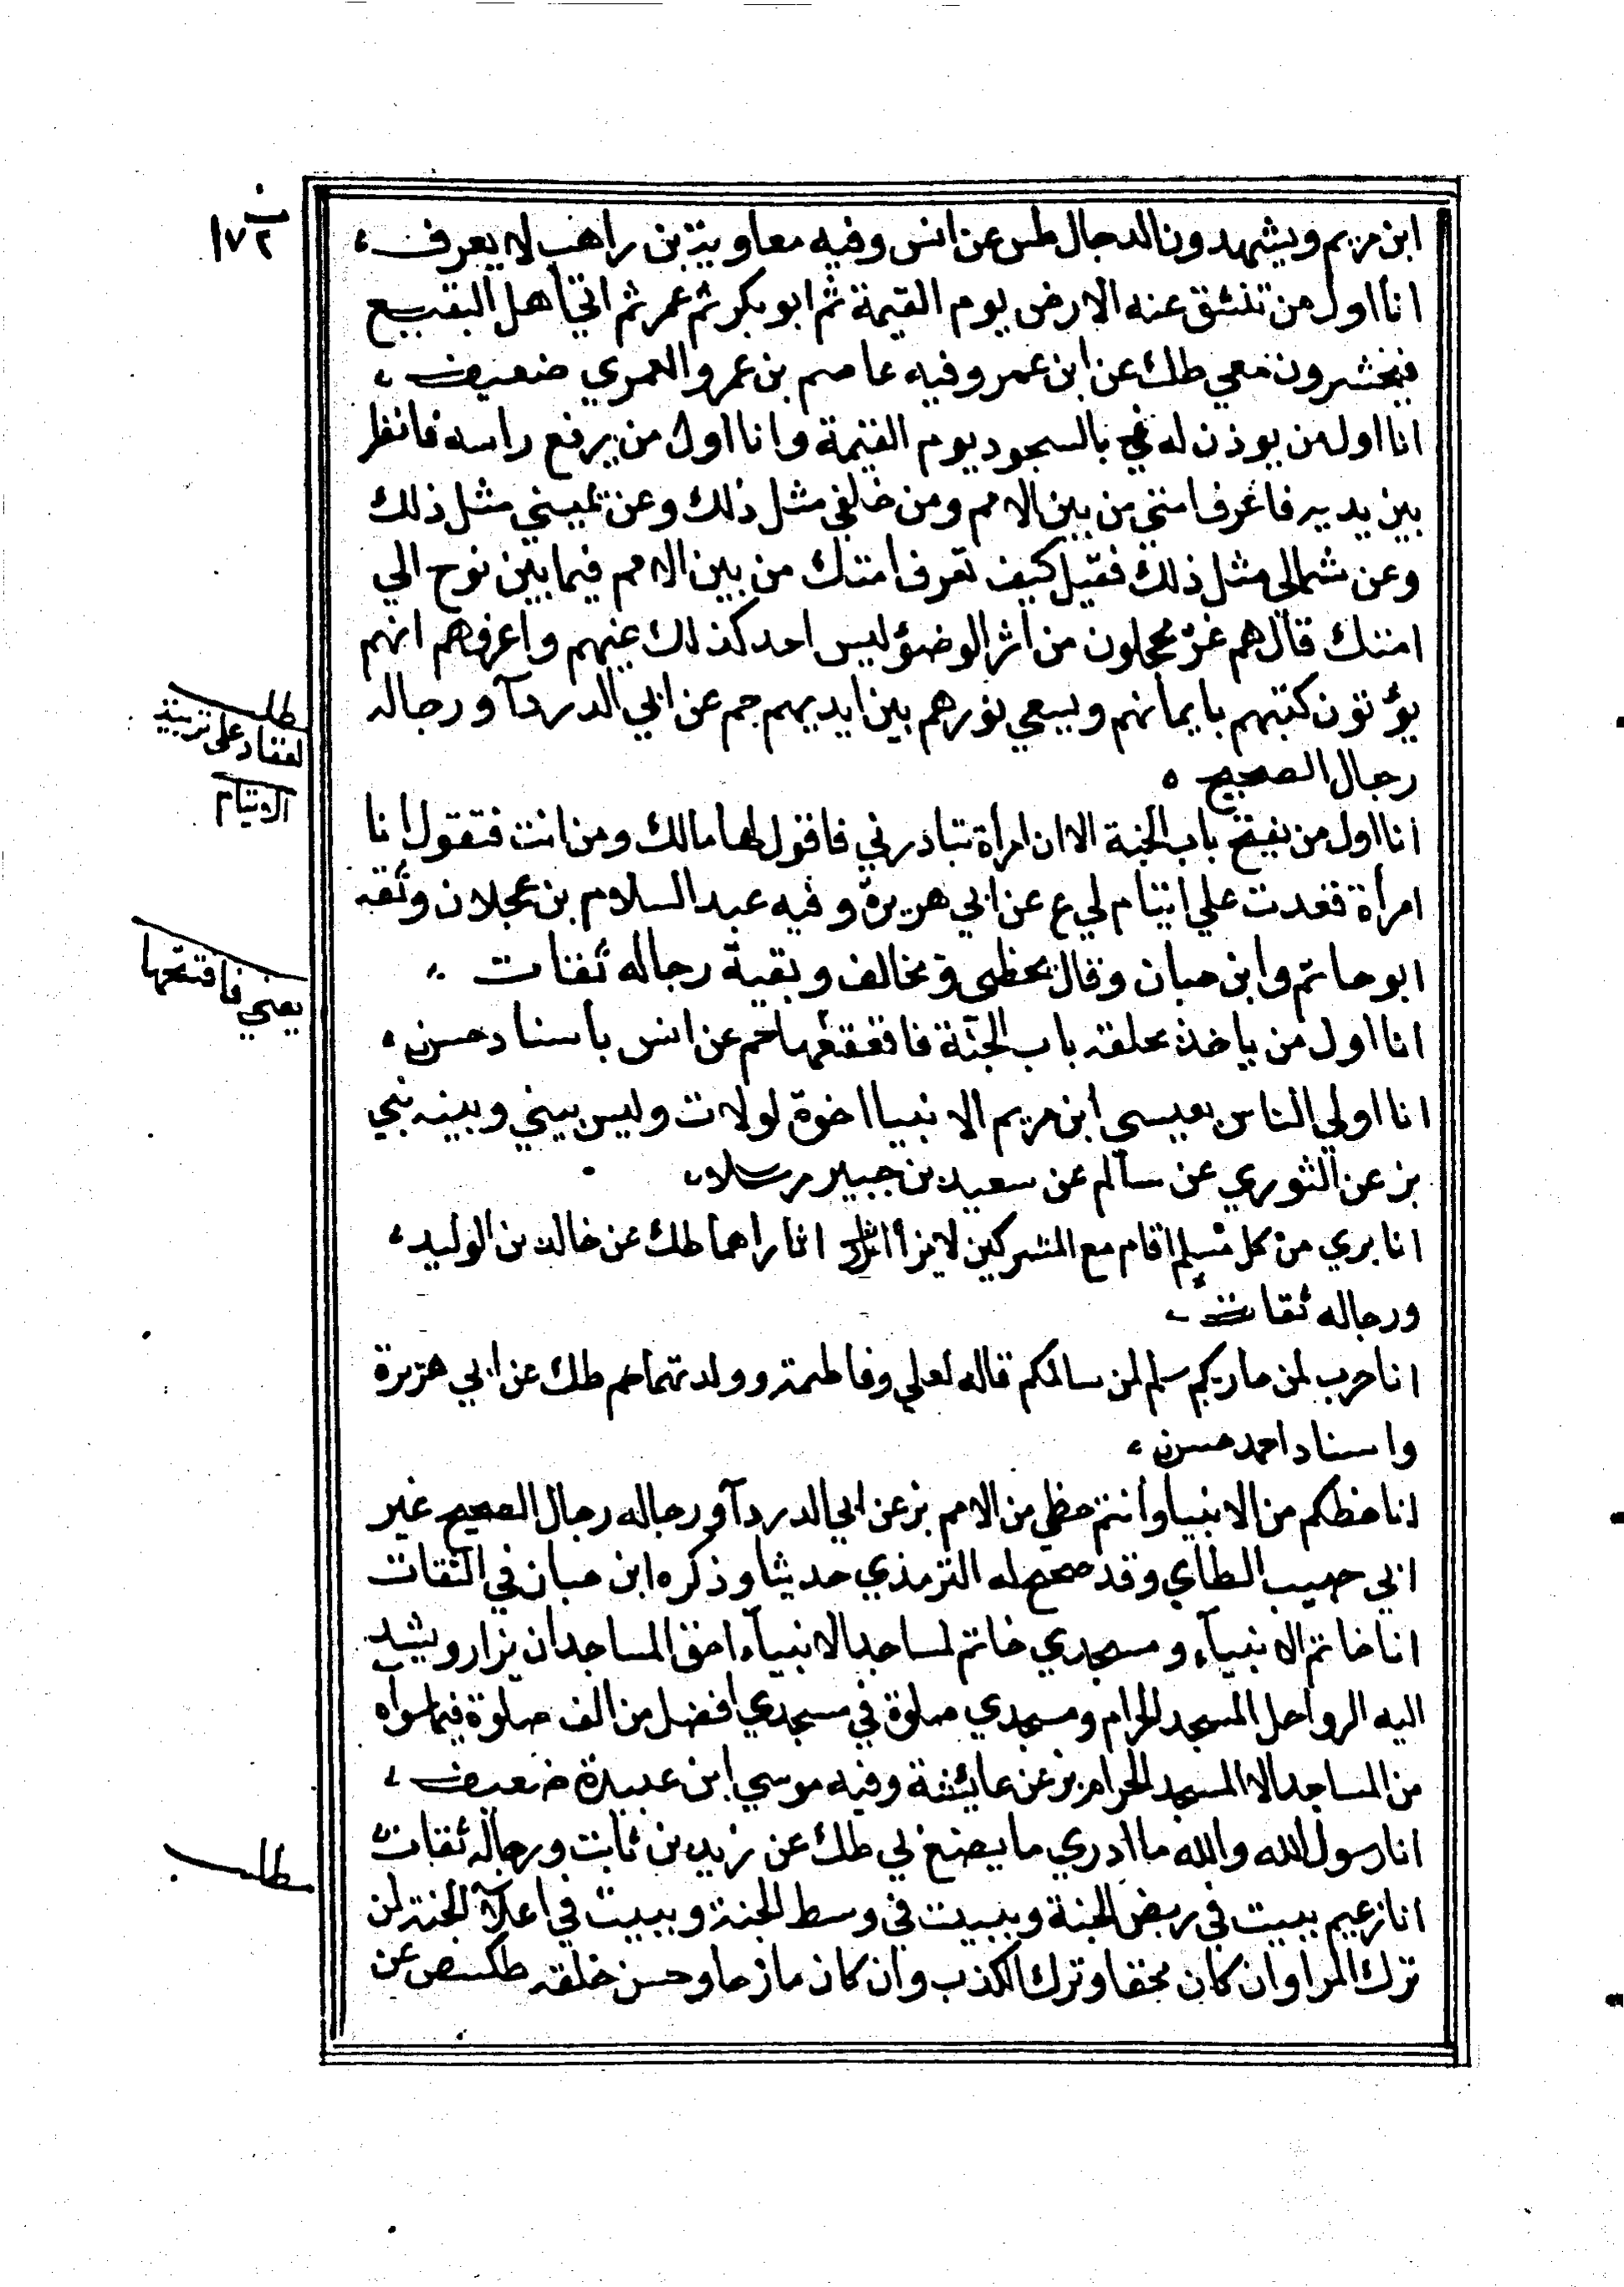 ١٧٢
ابن مريم ويشهدون الدجال طس عن انس وفيه معاوية بن راهب لا يعرف
انا اول من تنشق عنه الارض يوم القيمة ثم ابو بكر ثم عمر ثم اتي اهل البقيع
فيحشرون معي طك عن ابن عمر وفيه عاصم بن عمر والعمري ضعيف
انا اول من يوذن له في بالسجود يوم القيمة وانا اول من يرفع راسه فانظر
بين يديه فاعرف امتي من بين الامم ومن خلفي مثل ذلك وعن يميني مثل ذلك
وعن شمالي مثل ذلك فقيل كيف تعرف امتك من بين الامم فيما بين نوح الي
امتك قال هم غر محجلون من اثر الوضؤ ليس احد كذلك غيرهم واعرفهم انهم
يؤتون كتبهم بايمانهم ويسعي نورهم بين ايديهم حم عن ابي الدردآ ورجاله
رجال الصحيح
انا اول من يفتح باب الجنة الا ان امرأة تبادرني فاقول لها مالك ومن انت فتقول انا
امرأة قعدت علي ايتام لي ع عن ابي هريرة وفيه عبد السلام بن عجلان وثقه
ابو حاتم وابن حبان وقال يخطي ويخالف وبقية رجاله ثقات
انا اول من ياخذ بحلقة باب الجنة فاقعقعها حم عن انس باسناد حسن
انا اولي الناس بعيسي ابن مريم الانبيا اخوة لولات وليس بيني وبينه نبي
بز عن الثوري عن سالم عن سعيد بن جبير مرسلا
انا بري من كل مسلم اقام مع المشركين لا يرأا ناراهما طك عن خالد بن الوليد
ورجاله ثقات
انا حرب لمن حاربكم سلم لمن سالمكم قاله لعلي وفاطمة وولديهما حم طك عن ابي هريرة
واسناد احمد حسن
انا حظكم من الانبيا وانتم حظي من الامم بز عن ابي الدردآ ورجاله رجال الصحيح غير
ابي حبيب الطاي وقد صحح له الترمذي حديثا وذكره ابن حبان في الثقات
انا خاتم الانبيآء ومسجدي خاتم لمساجد الانبيآء احق المساجد ان يزار ويشد
اليه الرواحل المسجد الحرام ومسجدي صلوة في مسجدي افضل من الف صلوة فيما سواه
من المساجد الا المسجد الحرام بز عن عائشة وفيه موسي ابن عبيدة ضعيف
انا رسول الله والله ما ادري ما يصنع بي طك عن زيد بن ثابت ورجاله ثقات
انا زعيم ببيت في ربض الجنة وببيت في وسط الجنة وببيت في اعلا الجنة لمن
ترك المرا وان كان محقا وترك الكذب وان كان مازحا وحسن خلقه طكسص عن
طلب
لعقاد علي تربية
الايتام
يعني فافتحها
طلب